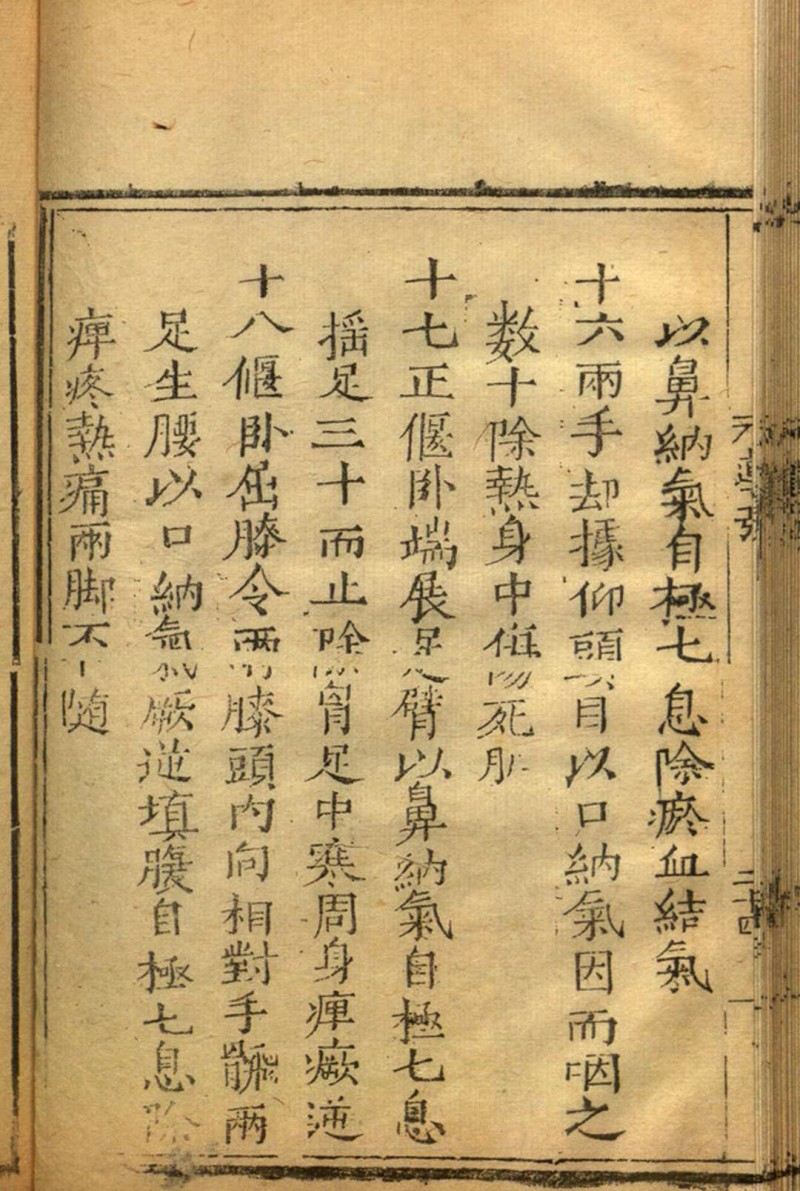 以鼻納氣自極七息除瘀血結氣
十六兩手却據仰頭自以口納氣因而咽之
数十除熱身中傷死肌
十七正偃卧端展足臂以鼻納氣自極七息
揺足三十而止除胷足中寒周身痺瘚逆
十八偃卧屈膝令兩膝頭内向相對手翻兩
足生腰以口納氣厥逆填腹自極七息除
痺疼熱痛兩脚不随
二十四